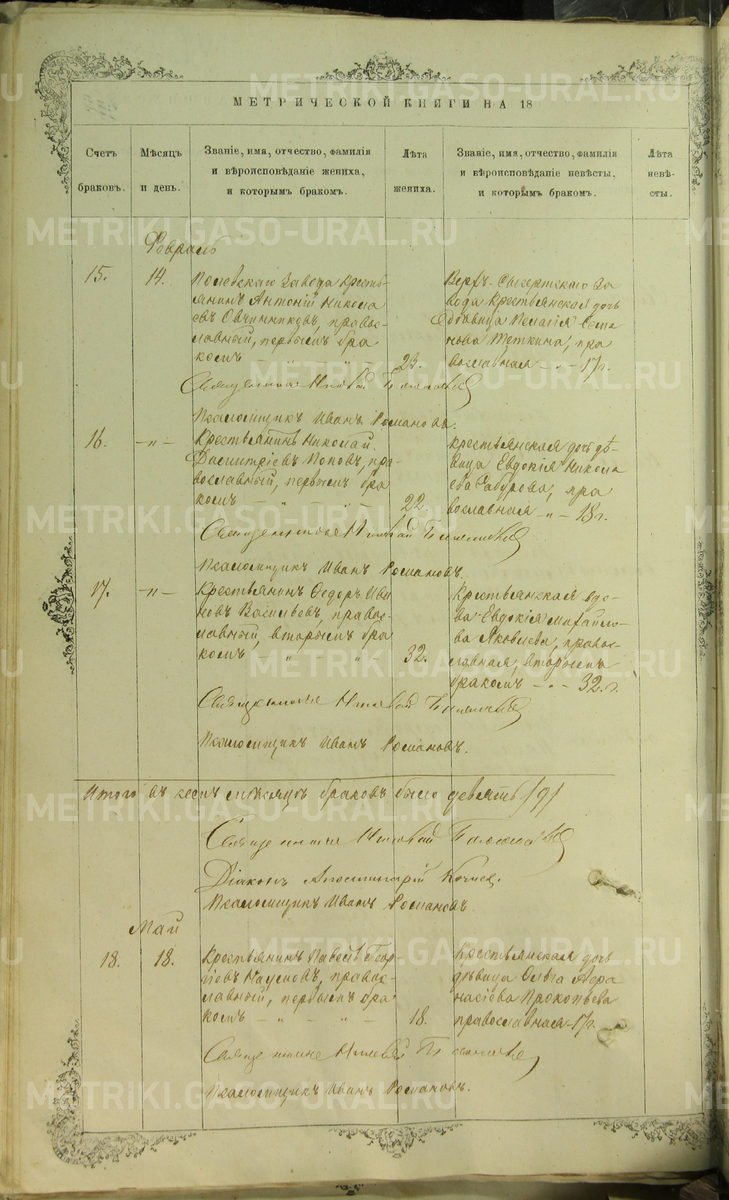 МЕТРИЧЕСКОЙ КНИГИ НА 18
Счетъ браковъ.
Мѣсяцъ и день.
Званіе, имя, отчество, фамилія и вѣроисповѣданіе жениха, и которымъ бракомъ.
Лѣта жениха.
Званіе, имя, отчество, фамилія и вѣроисповѣданіе невѣсты, и которымъ бракомъ.
Лѣта невѣсты.
Февраль
15.
14.
Полевскаго Завода кресть-
янинъ Антоній Никола
евъ Овчинниковъ, право-
славный, первымъ бра
комъ — „ — „ —
23.
Верхъ-Сысертскаго За
вода Крестьянская дочь
дѣвица Пелагія Семе
нова Теткина, пра
вославная — „ — 17 г.
Священникъ
Псаломщикъ Иванъ Романовъ.
16.
— „ —
Крестьянинъ Николай
Димитріевъ Поповъ, пра-
вославный, первымъ бра
комъ — „ — „ —
22.
Крестьянская дочь дѣ-
вица Евдокія Никола
ева, пра
вославная — „ — 18 г.
Священникъ
Псаломщикъ Иванъ Романовъ.
17.
— „ —
Крестьянинъ Ѳедоръ Ива
новъ Васильевъ, право-
славный, вторымъ бра
комъ „ „
32.
Крестьянская вдо-
ва Евдокія Михайло-
ва Яковлева, право-
славная, вторымъ
бракомъ — „ — 32 г.
Священникъ
Псаломщикъ Иванъ Романовъ.
Итого въ семъ мѣсяцѣ браковъ было девять /9/
Священникъ
Діаконъ
Псаломщикъ Иванъ Романовъ
Май
18.
18.
Крестьянинъ Павелъ Геор
гіевъ Наумовъ, право-
славный, первымъ бра
комъ — „ — „ —
18.
Крестьянская дочь
дѣвица Ольга Аѳа
насіева Прокопьева
православная 17 г.
Священникъ
Псаломщикъ Иванъ Романовъ.
METRIKI.GASO-URAL.RU